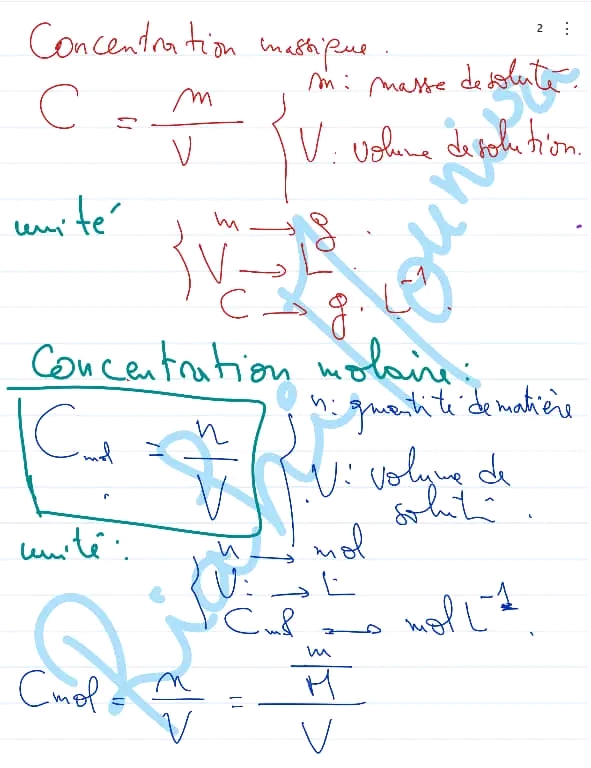 2
Concentration massique.
C = m / V { m: masse de soluté.
V: volume de solution.
unité { m → g.
V → L.
C → g. L⁻¹.
Concentration molaire:
C mol = n / V { n: quantité de matière
V: volume de
unité: { n → mol
V: → L
Cmol → mol L⁻¹.
Cmol = n / V = m / M / V
Riahi Mounira